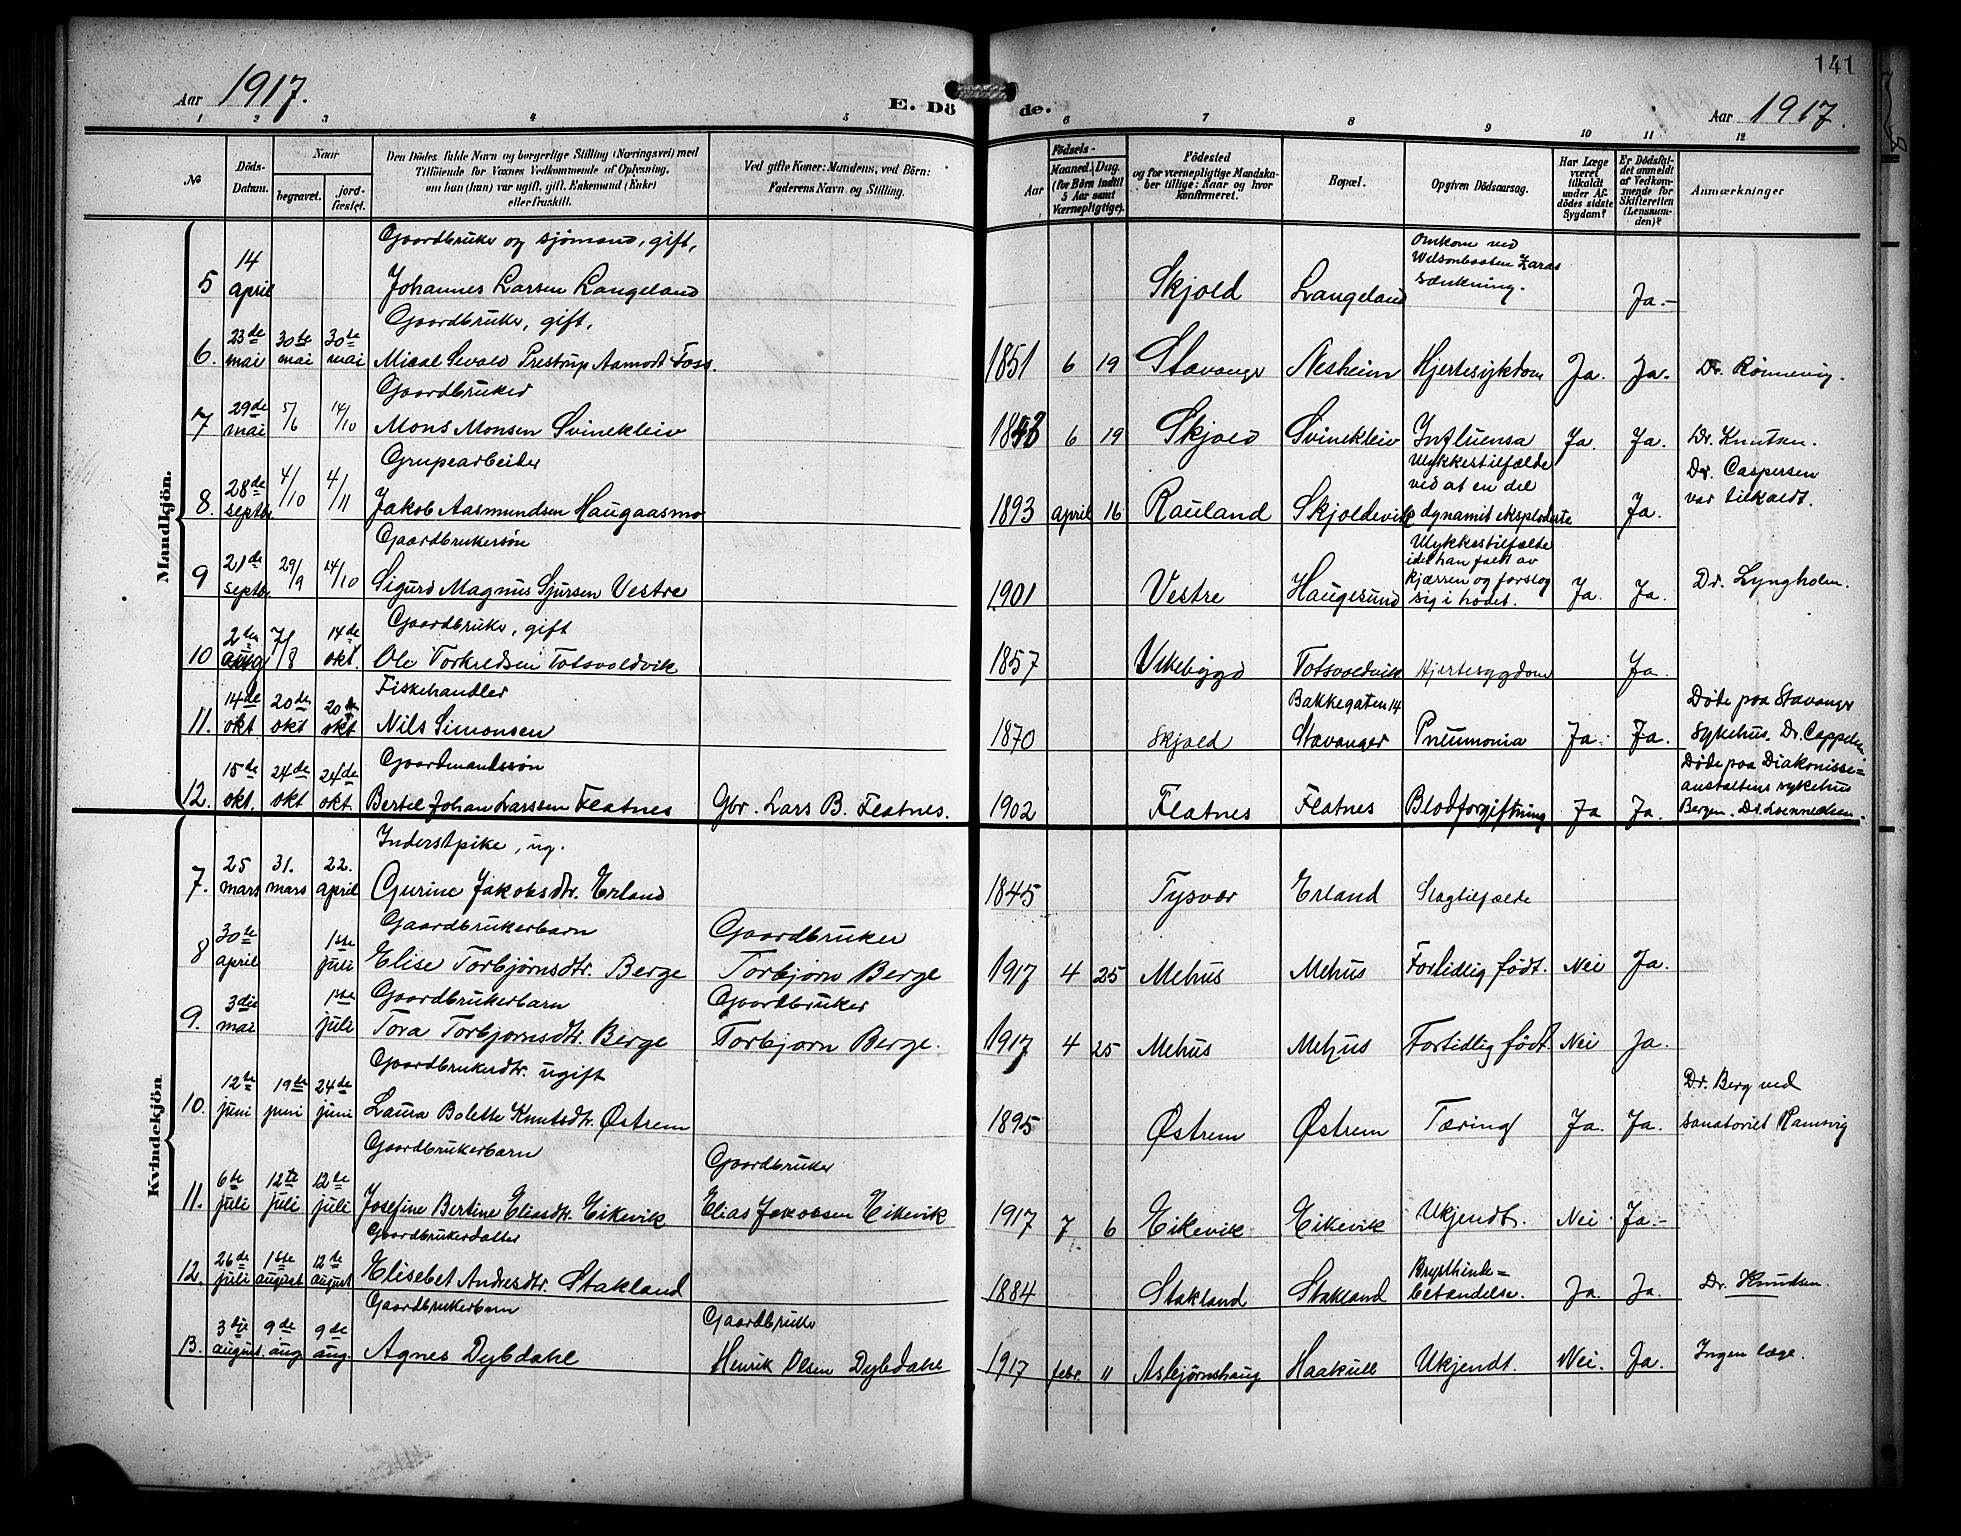 141
Aar 1917.
E. Dö de.
Aar 1917.
1 2 3 4 5 6 7 8 9 10 11 12
№
Döds-Datum.
Naar
begravet.
jord-fæstet.
Den Dödes fulde Navn og borgerlige Stilling (Næringsvei) med
Tilföiende for Voxnes Vedkommende af Oplysning,
om hun (han) var ugift, gift, Enkemand (Enke)
eller fraskilt.
Ved gifte Koner: Mandens, ved Börn:
Faderens Navn og Stilling.
Aar
Födsels-
Maaned. Dag.
(for Börn indtil
5 Aar samt
Værnepligtige).
Födested
og for værnepligtige Mandska-
ber tillige: Naar og hvor
konfirmeret.
Bopæl.
Opgiven Dödsaarsag.
Har Læge
været
tilkaldt
under Af-
dödes sidste
Sygdom?
Er Dödsfal-
det anmeldt
af Vedkom-
mende for
Skifteretten
(Lensman-
den)?
Anmærkninger
Mandkjön.
5 14 april Gaardbruker og sjømand, gift, Johannes Larsen Langeland Skjold Langeland Omkom ved Wilsonbaaten Zaras sænkning. Ja.-
6. 23de mai 30te mai 30te mai Gaardbruker, gift, Mical Sevald Prestrup Aamodt Foss. 1851 6 19 Stavanger Nesheim Hjertesykdom Ja. Ja. Dr. Rønnevig.
7 29de mai 5/6 14/10 Gaardbruker Mons Monsen Svinekleiv 6 19 Skjold Svinekleiv Influensa Ja. Ja. Dr. Knutsen.
8. 28de septbr. 4/10 4/11 Grupearbeider Jakob Aasmundsen Haugaasmo 1893 april 16 Rauland Skjoldevik Ulykkestilfælde ved at en del dynamit eksploderte Ja. Dr. Caspersen var tilkaldt.
9 21de septbr. 29/9 14/10 Gaardbrukersøn Sigurd Magnus Sjursen Vestre 1901 Vestre Haugesund Ulykkestilfælde idet han faldt av kjærren og forslog sig i hodet. Ja. Ja. Dr. Lyngholm.
10 2den aug 7/8 14de okt. Gaardbruker, gift Ole Torkeldsen Totsvoldvik 1857 Vikebygd Totsvoldvik Hjertesygdom Ja.
11. 14de okt 20de okt 20de okt Fiskehandler Nils Simonsen 1870 Skjold Bakkegaten 14 Stavanger Pneumonia Ja. Ja. Døde paa Stavanger Sykehus. Dr. Cappelen
12. 15de okt. 24de okt 24de okt. Gaardmandssøn Bertel Johan Larssen Flatnes Gbr. Lars B. Flatnes. 1902 Flatnes Flatnes Blodforgiftning Ja Ja. Døde paa Diakonisse= anstaltens sykehus Bergen. Dr.
Kvindekjön
7. 25 mars 31. mars 22. april Inderstpike, ug. Gurine Jakobsdtr. Erland 1845 Tysvær Erland Slagtilfælde
8 30te april 1ste juli Gaardbrukerbarn Elise Torbjørnsdtr. Berge Gaardbruker Torbjørn Berge 1917 4 25 Mehus Mehus Fortidlig født. Nei Ja.
9. 3die mai 1ste juli Gaardbrukerbarn Tora Torbjørnsdtr. Berge Gaardbruker Torbjørn Berge. 1917 4 25 Mehus Mehus Fortidlig født. Nei Ja.
10. 12te juni 19de juni 24de juni Gaardbrukerdtr. ugift Laura Bolette Knutsdtr. Østrem 1895 Østrem Østrem Tæring Ja. Ja. Dr. Berg ved sanatoriet Ramsvig
11. 6te juli 12te juli 12te juli Gaardbrukerbarn Josefine Bertine Eliasdtr. Eikevik Gaardbruker Elias Jakobsen Eikevik 1917 7 6 Eikevik Eikevik Ukjendt. Nei Ja.-
12. 26de juli 1ste august 12te august Gaardbrukerdatter Elisebet Andresdtr. Stakland 1884 Stakland Stakland Brysthinde= betændelse. Ja. Ja. Dr. Knudsen.
13. 3dje august. 9de aug. 9de aug. Gaardbrukerbarn Agnes Dybdahl Gaardbruker Henrik Olsen Dybdahl 1917 febr. 11 Asbjørnshaug Haakull Ukjendt. Nei. Ja. Ingen læge.